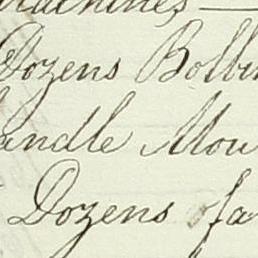 Machines —
Dozens Bobbi
andle Mou
Dozens fa